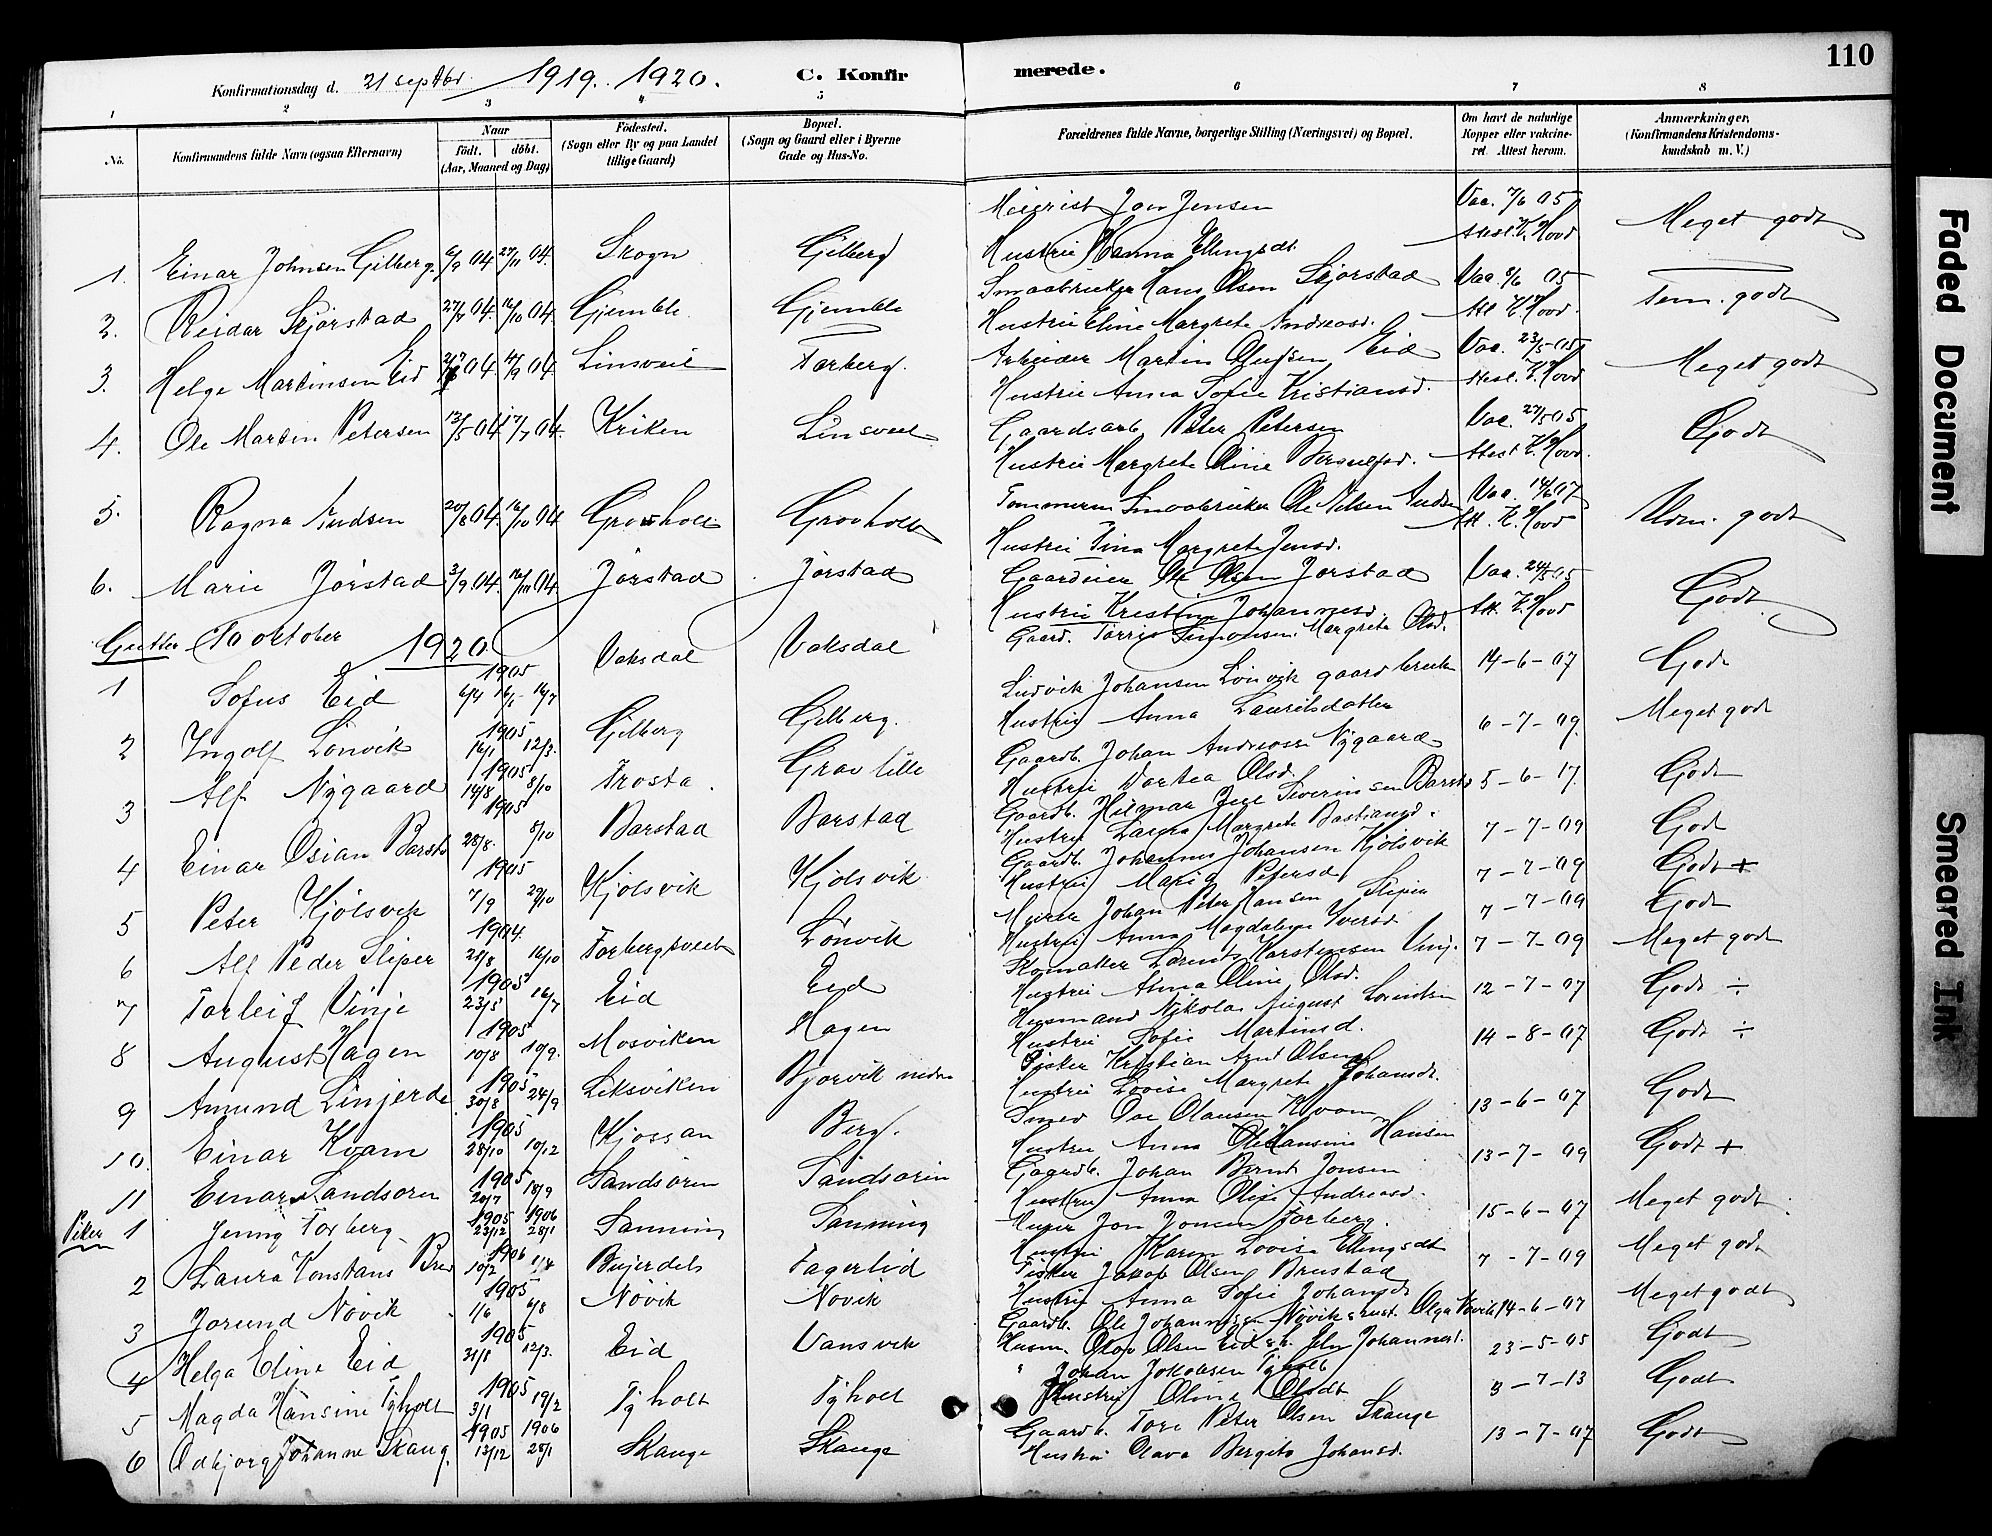 110
Konfirmationsdag d. 21 septbr. 1919. 1920. C. Konfirmerede.
1 2 3 4 5 6 7 8
No. Konfirmandens fulde Navn (ogsaa Efternavn) Naar født. døbt. (Aar, Maaned og Dag) Fødested. (Sogn eller By og paa Landet tillige Gaard) Bopæl. (Sogn og Gaard eller i Byerne Gade og Hus-No. Forældrenes fulde Navne, borgerlige Stilling (Næringsvei) og Bopæl. Om havt de naturlige Kopper eller vaccineret. Attest herom. Anmærkninger. (Konfirmandens Kristendomskundskab m. V.)
Meierist Jon Jensen Vac. 7/6 05 Meget godt
1. Einar Johnsen Gilberg. 6/9 04 27/11 04. Skogn Gjelberg Hustru Hanna Ellingsdt. Attest K. Hovd
Smaabruker Hans Olsen Skjørstad Vac. 05
2. Reidar Skjørstad 27/8 04. 16/10 04. Gjemble Gjemble Hustru Eline Margrete Andreasd. Att K. Hovd. Tem. godt
3. Helge Martinsen Eid 04. 04. Linsveil Torberg. Arbeider Martin Olufsen Eid Vac. 23/5-05 Meget godt
Hustru Anna Sofie Kristiansd. Attest. K. Hovd
4. Ole Martin Petersen 13/5 04 17/7 04. Kriken Linsveet Gaardsarb. Peter Petersen Vac. 27/5 05 Godt
Hustru Margrete Oline Attest K. Hovd.
5. Ragna 20/8 04. 16/10 04 Grovholt Grovholt Tømmerm. Smaabruker Ole Nilsen Vac. 14/6 07 Udm. godt
Hustru Tina Margrete Jensd. Att. K. Hovd
6. Marie Jørstad 3/9.04. 04. Jørstad Jørstad Gaardeier Ole Olsen Jørstad Vac. 24/5 05 Godt
Hustru Kristine Johannesd. Att. K. Hovd
Gutter 10 oktober 1920 Gaard. Torris Simonsen. Margrete Olsd.
1 Sofus Eid 1905 16/7 Vaksdal Vaksdal 14-6-07 Godt
Ludvik Johansen Lønvik gaardbruk
2 Ingolf Lønvik 1905 16/1 12/3. Gjelberg Gjelberg. Hustru Anna Lauritsdatter 6-7-09. Meget godt
Gaardb. Johan Andreass Nygaard
3 Alf Nygaard 1905 14/8 8/10 Frosta. Grav lille Hustru Dortea Olsd. 5-6-17. Godt
Gaardb. Hilmar Severinsen Barsta
4 Einar Osian Barsta 1905 28/8. 8/10 Barstad Barstad Hustru Laura Margrete Bastiansd. 7-7-09 Godt
Gaardb. Johannes Johansen Kjølsvik
5 Peter Kjølsvik 1905 7/9 29/10 Kjølsvik Kjølsvik Hustru Maria Petersd 7-7-09 Godt +
Murer Johan Peter Hansen Sliper
6 Alf Peder Sliper 1904. 28/8 16/10 Torbergsveet Lønvik Hustru Anna Magdalena Iversd 7-7-09 Godt
Skomaker Lorents Karstensen Vinj.
7 Torleif Vinje 1905 23/5 16/7 Eid Eid Hustru Anna Oline Olsd. 7-7-09 Meget godt
Husmand Nikolai August Lorentsen
8 August Hagen 1905 10/8 10/9. Mosviken Hagen Hustru Sofie Martinsd. 12-7-07 Godt ÷
Fisker Kristian Arnt Olsen
9 Amund Linjerde 1905 30/8 24/9 Leksviken Bjørvik nedre Hustru Lovise Margrete Johansdt. 14-8-07 Godt ÷
Smed Ole Olausen Kvam
10. Einar Kvam 1905 28/10 10/12 Kjøssan Berg. Hustru Anna Hansine Hansen 13-6-07 Godt
Gaardb. Johan Bernt Jonsen
11 Einar Sandsøren 1905 20/7 18/9 Sandsøren Sandsørin Hustru Anna Oline Andreasd. 13-7-09 Godt +
Piker 1 Jenny Torberg 1905 23/12 1906 28/1 Sanning Sanning Murer Jon Jonsen Torberg. 15-6-07 Meget godt.
Hustru Karen Lovise Ellingsdt
2 Laura Konstans Bru 1906 10/2 1/4 Fagerlid Fisker Jakob Olsen Brustad 7-7-09 Meget godt
Hustru Anna Sofie Johansd
3 Jorund Nøvik 1905 1/6 6/8 Nøvik Nøvik Gaardb. Ole Johannesen Nøvik & hust. Olga Nøvik 14-6-07 Meget godt
4 Helga Eline Eid 1905 31/8 12/3. Eid Vansvik Husm. Olav Olsen Eid Johannesd. 23-5-05 Godt
" Johan Jakobsen Tyholt
5 Magda Hansine Tyholt 1905 3/1 19/2 Tyholt Tyholt Hustru Oline Olsdt 3-7-13 Godt
Gaardb. Tore Peter Olsen Skauge
6 Odbjørg Johanne Skaug. 1905 13/12 1906 28/1 Skauge Skauge Hustru Olava Bergite Johansd. 13-7-07 Godt
Faded Document
Smeared Ink